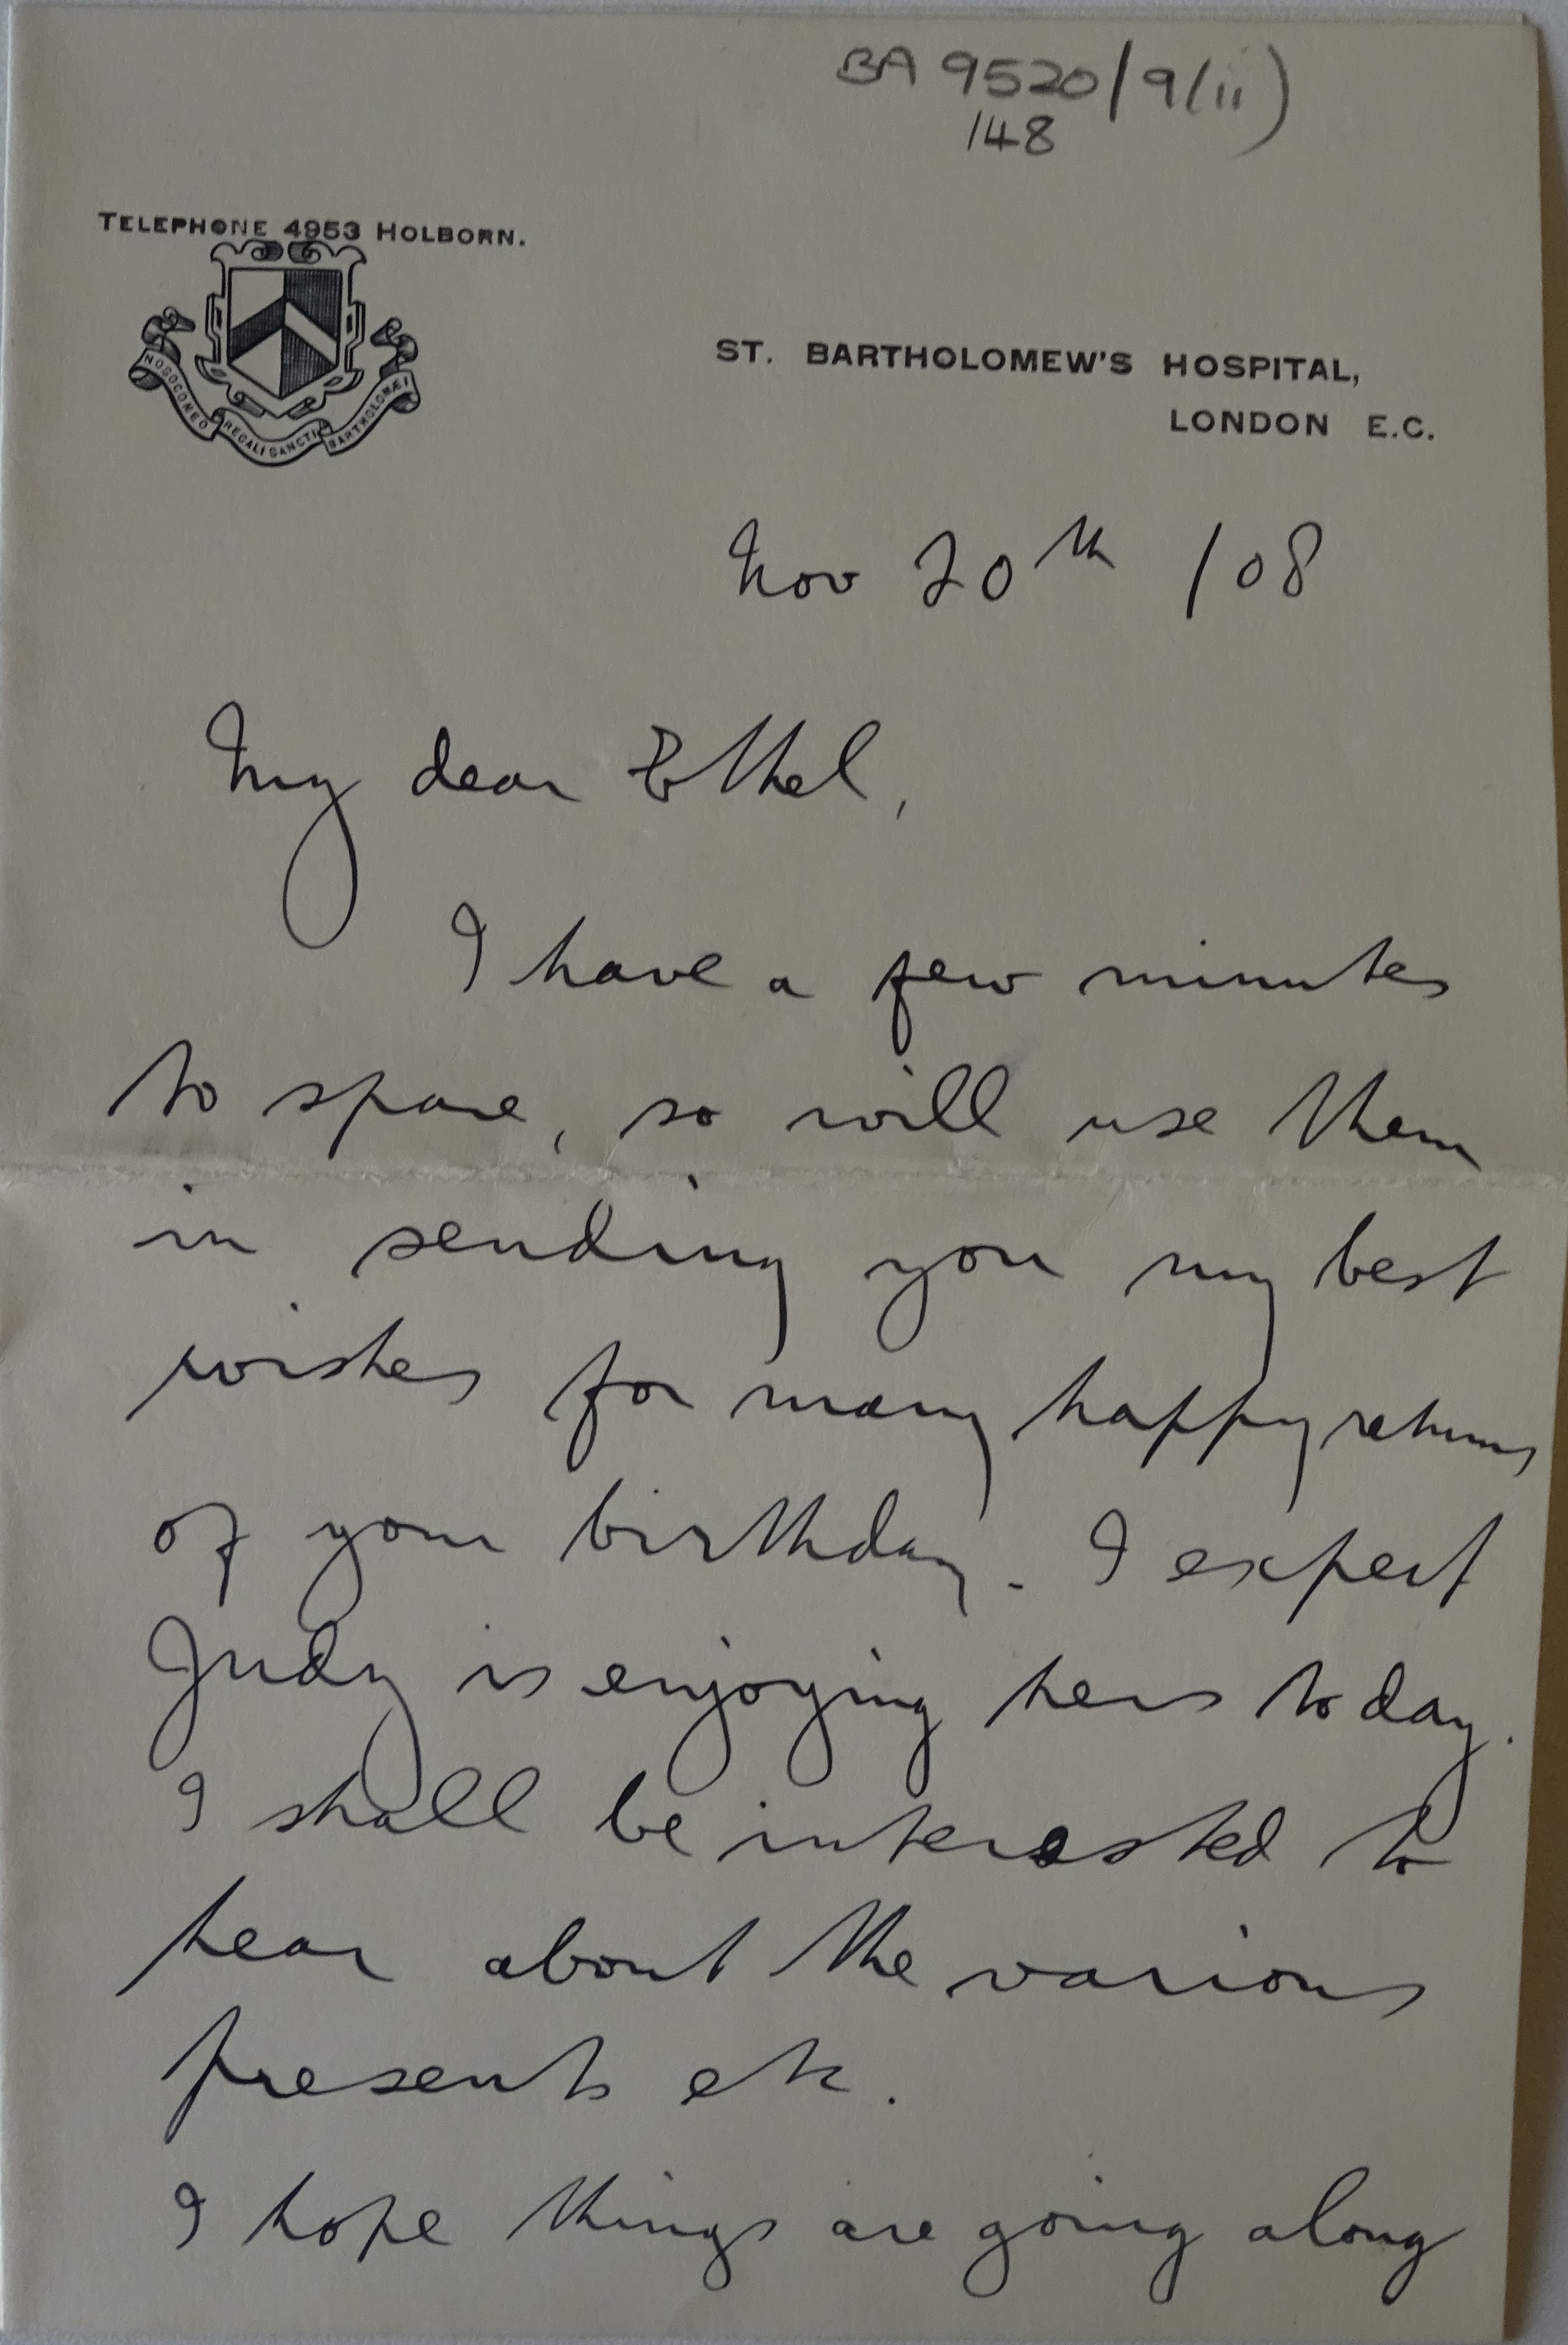 BA 9520/9(ii)
148
TELEPHONE 4953 HOLBORN.
NOSOCOMEO REGALI SANCTI BARTHOLOMÆI
ST. BARTHOLOMEW'S HOSPITAL,
LONDON E.C.
Nov 20th /08
My dear Ethel,
I have a few minutes
to spare, so will use them
in sending you my best
wishes for many happy returns
of your birthday. I expect
Judy is enjoying hers today.
I shall be interested to
hear about the various
presents etc.
I hope things are going along